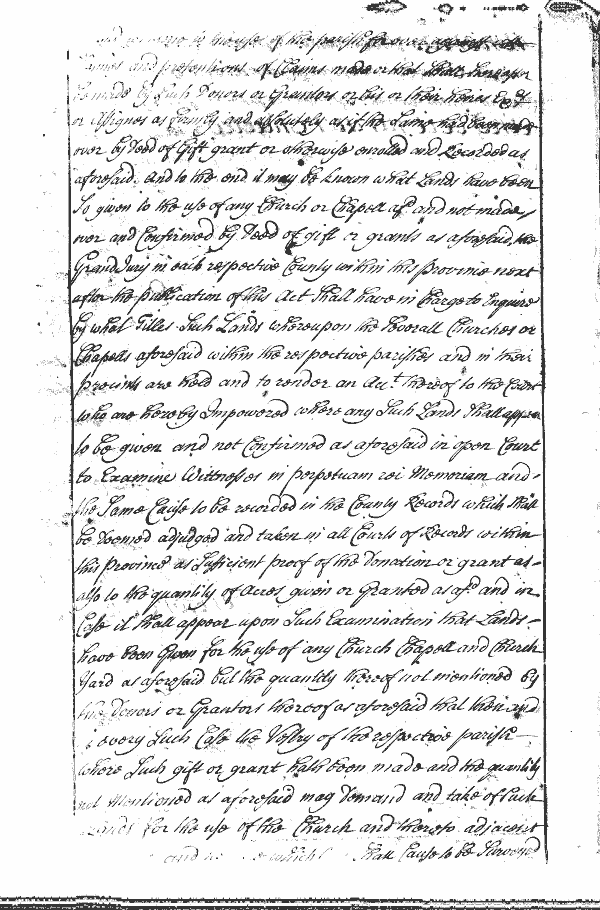 use of the parish for ever against all
Claims and pretentions of Claims made or that Shall hereafter
be made by Such Donors or Grantors or his or their heires Exrs
or Assignes as firmly and absolutely as if the Same had been made
over by Deed of Gift grant or otherwise enrolled and Recorded as
aforesaid. And to the end it may be known what Lands have been
So given to the use of any Church or Chapell afd and not made
over and Confirmed by Deed of gift or grants as aforesaid, the
Grand Jury in each respective County within this province next
after the publication of this Act Shall have in Charge to Enquire
by what Titles Such Lands whereupon the Severall Churches or
Chapells aforesaid within the respective parishes and in their
precincts are held and to render an Acct thereof to the Court
who are hereby Impowered where any Such Lands Shall appear
to be given and not Confirmed as aforesaid in open Court
to Examine Wittnesses in perpetuam rei Memoriam and
the Same Cause to be recorded in the County Records which Shall
be deemed adjudged and taken in all Courts of Records within
this province as Sufficient proof of the donation or grant as
also to the quantity of Acres given or Granted as afd and in
Case it Shall appear upon Such Examination that Lands
have been Given for the use of any Church Chapell and Church
Yard as aforesaid but the quantity thereof not mentioned by
the Donors or Grantors thereof as aforesaid that then and
in every Such Case the Vestry of the respective parish
where Such gift or grant hath been made and the quantity
not Mentioned as aforesaid may Demand and take of Such
Lands for the use of the Church and thereto adjacent
which Shall Cause to be Surveyed